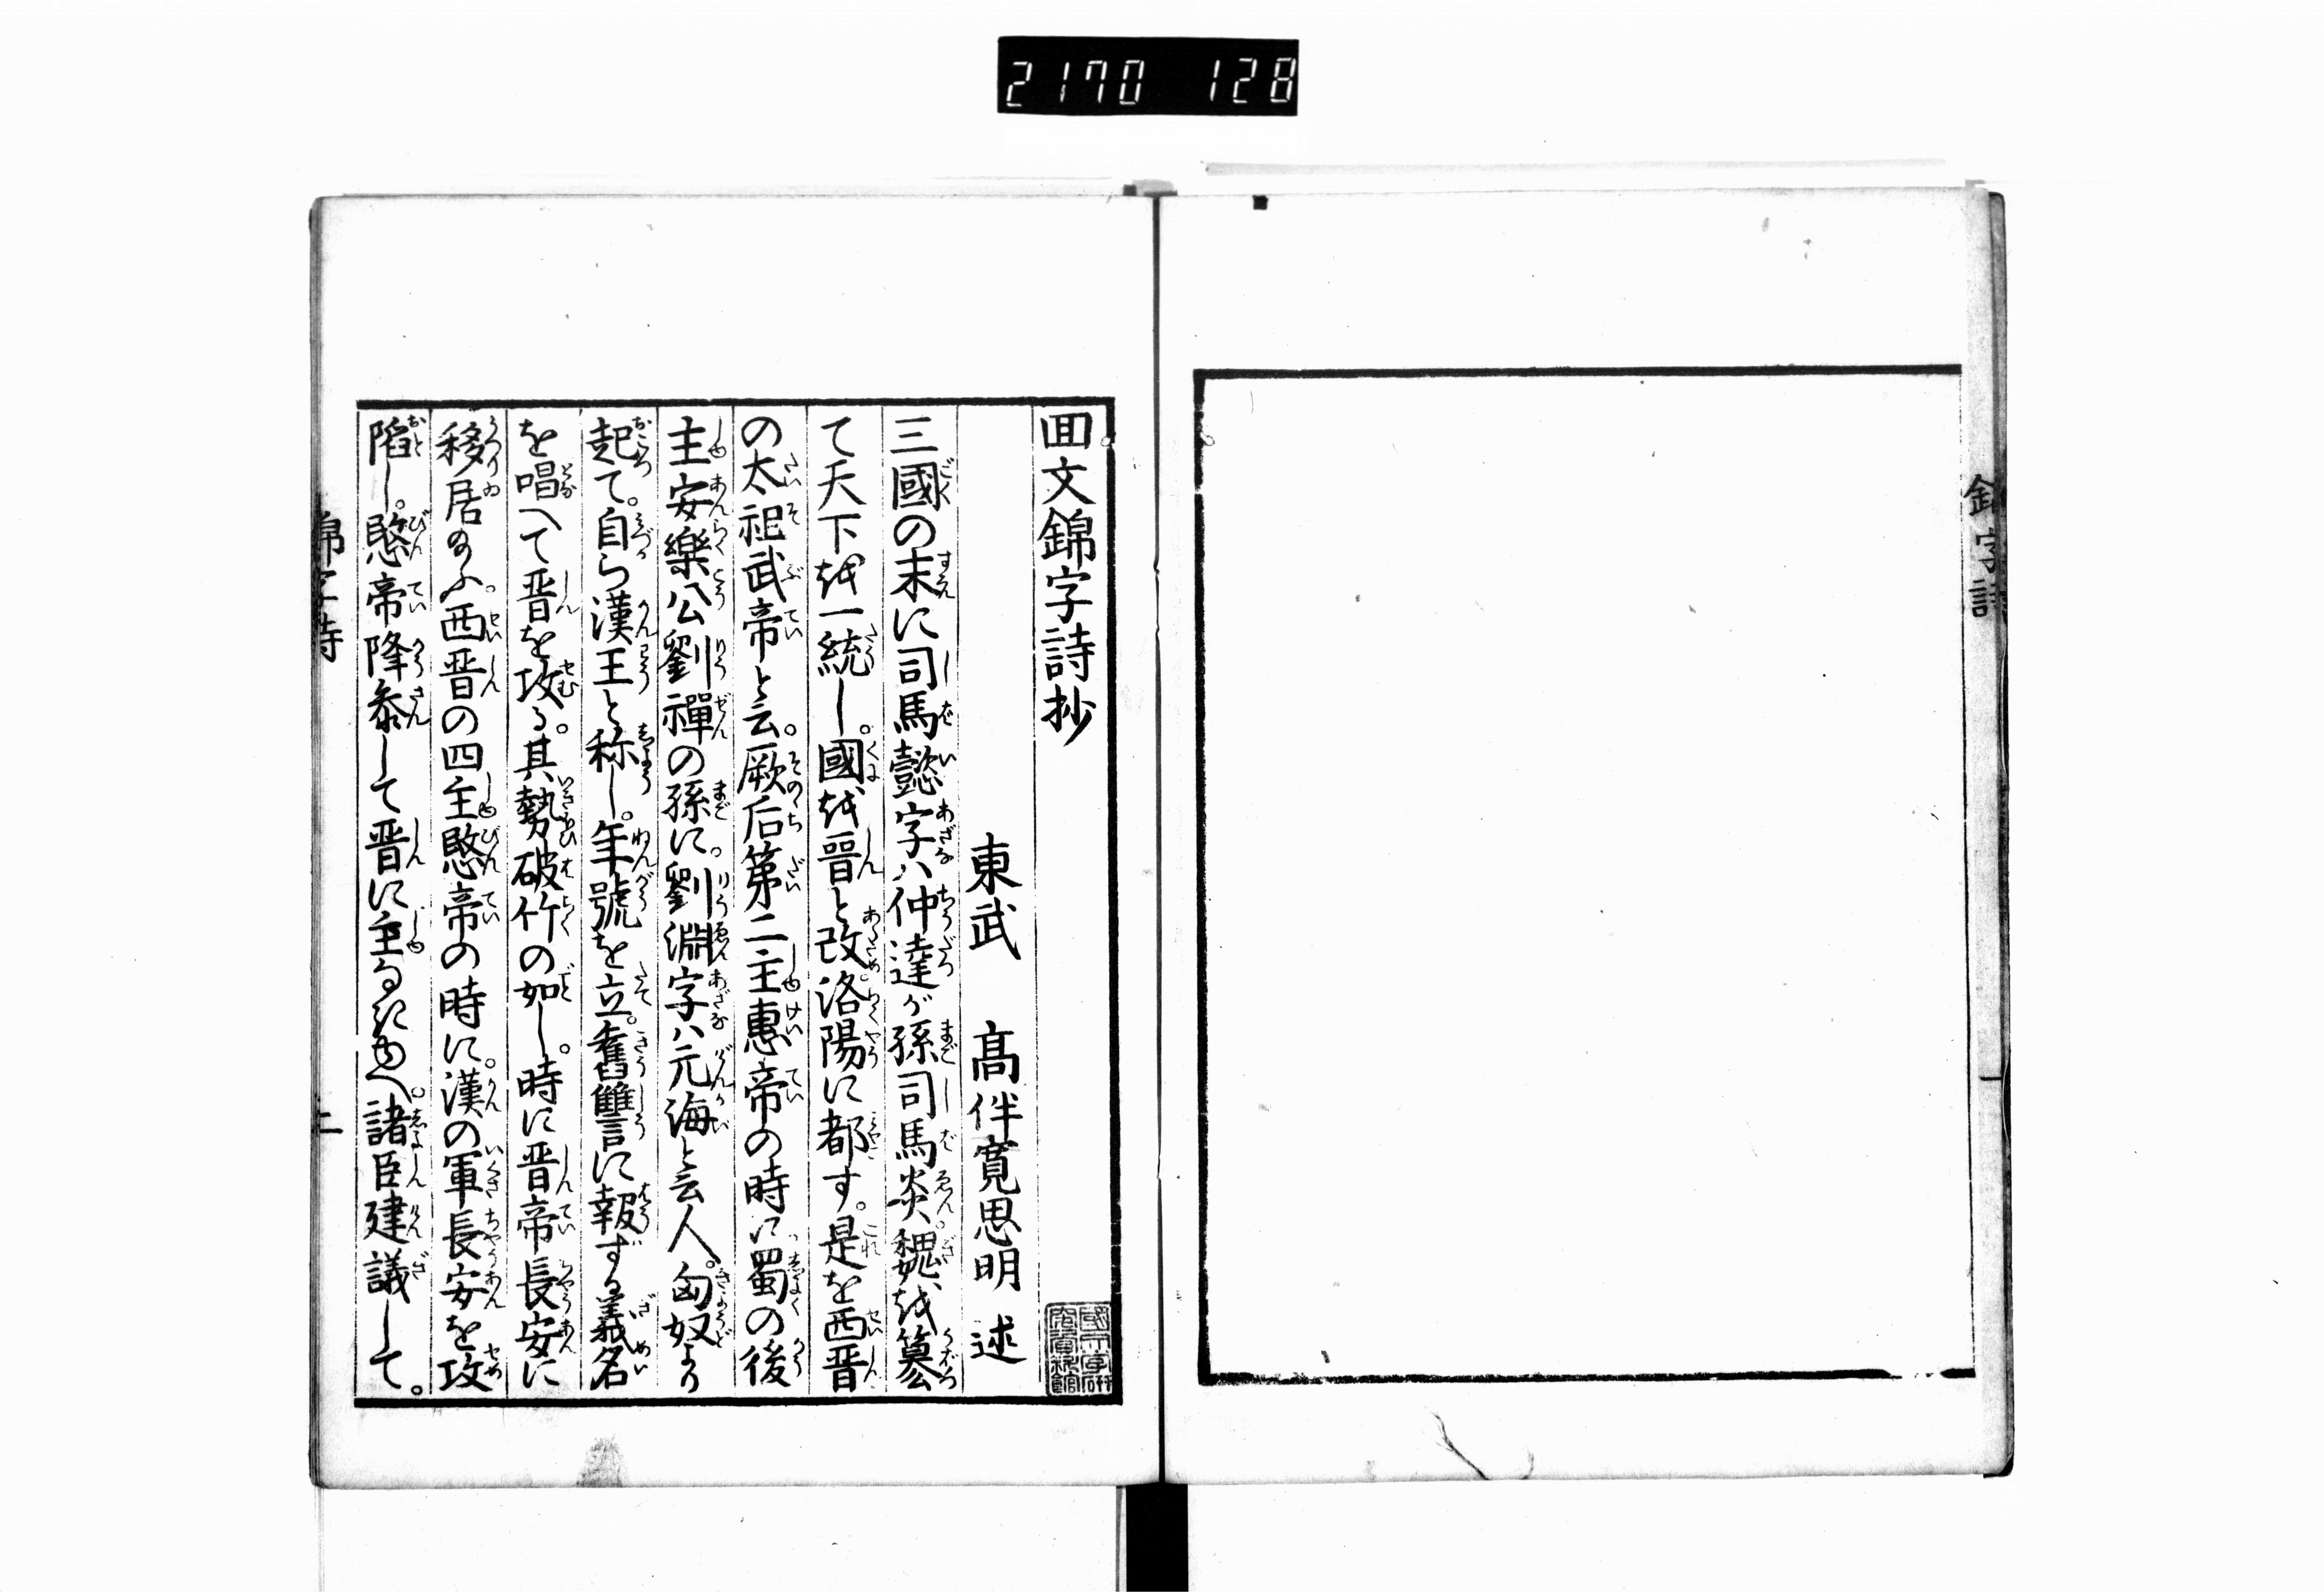 2170 128
錦字詩
一
回文錦字詩抄
東武 髙伴寛思明 述
三國の末に司馬懿字ハ仲達が孫司馬炎。魏越簒
て天下越一統し。國越晋と改。洛陽に都す。是を西晋
の太祖武帝と云。厥后第二主惠帝の時に蜀の後
主安樂公劉禪の孫に。劉淵字ハ元海と云人。匈奴より
起て。自ら漢王と称し。年號を立。舊讐に報ずる義名
を唱へて晋を攻る。其勢破竹の如し。時に晋帝長安に
移居給ふ。西晋の四主愍帝の時に。漢の軍長安を攻
陷し。愍帝降参して晋に主なきゆへ。諸臣建議して。
錦字詩
二
國文学研究資料館